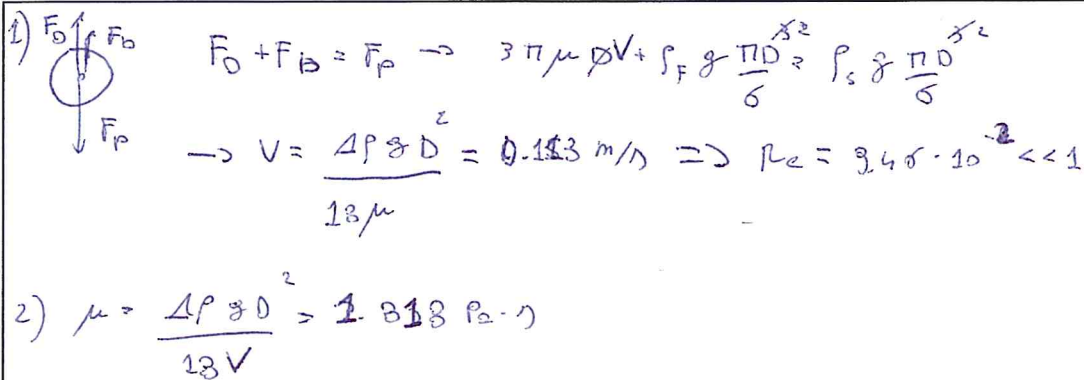 1) F_D F_b F_D + F_b = F_p → 3πμ D V + ρ_F g πD³²/6 = ρ_s g πD³²/6
F_p
→ V = Δρ g D²/18μ = 0.113 m/s ⇒ Re = 9.46·10⁻² << 1
2) μ = Δρ g D²/18V = 1.318 Pa·s